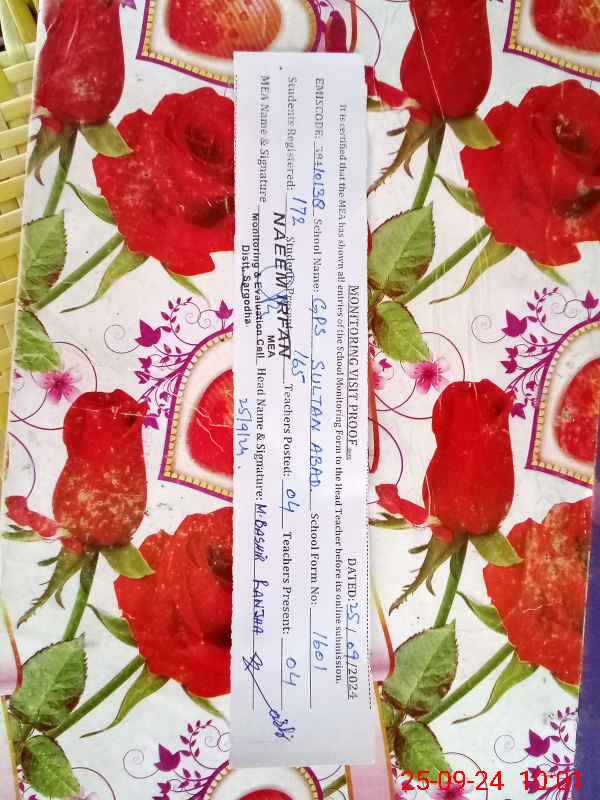 MONITORING VISIT PROOF DATED: 25/09/2024
It is certified that the MEA has shown all entries of the School Monitoring Form to the Head Teacher before its online submission.
EMISCODE: School Name: GPS SULTAN ABAD School Form No: 1601
Students Registered: 172 Students Present: 165 Teachers Posted: 04 Teachers Present: 04
MEA Name & Signature Head Name & Signature: M. BASHIR RANJHA
NAEEM IRFAN
MEA
Monitoring & Evaluation Cell
Distt. Sargodha
25/9/24.
25-09-24 10:01